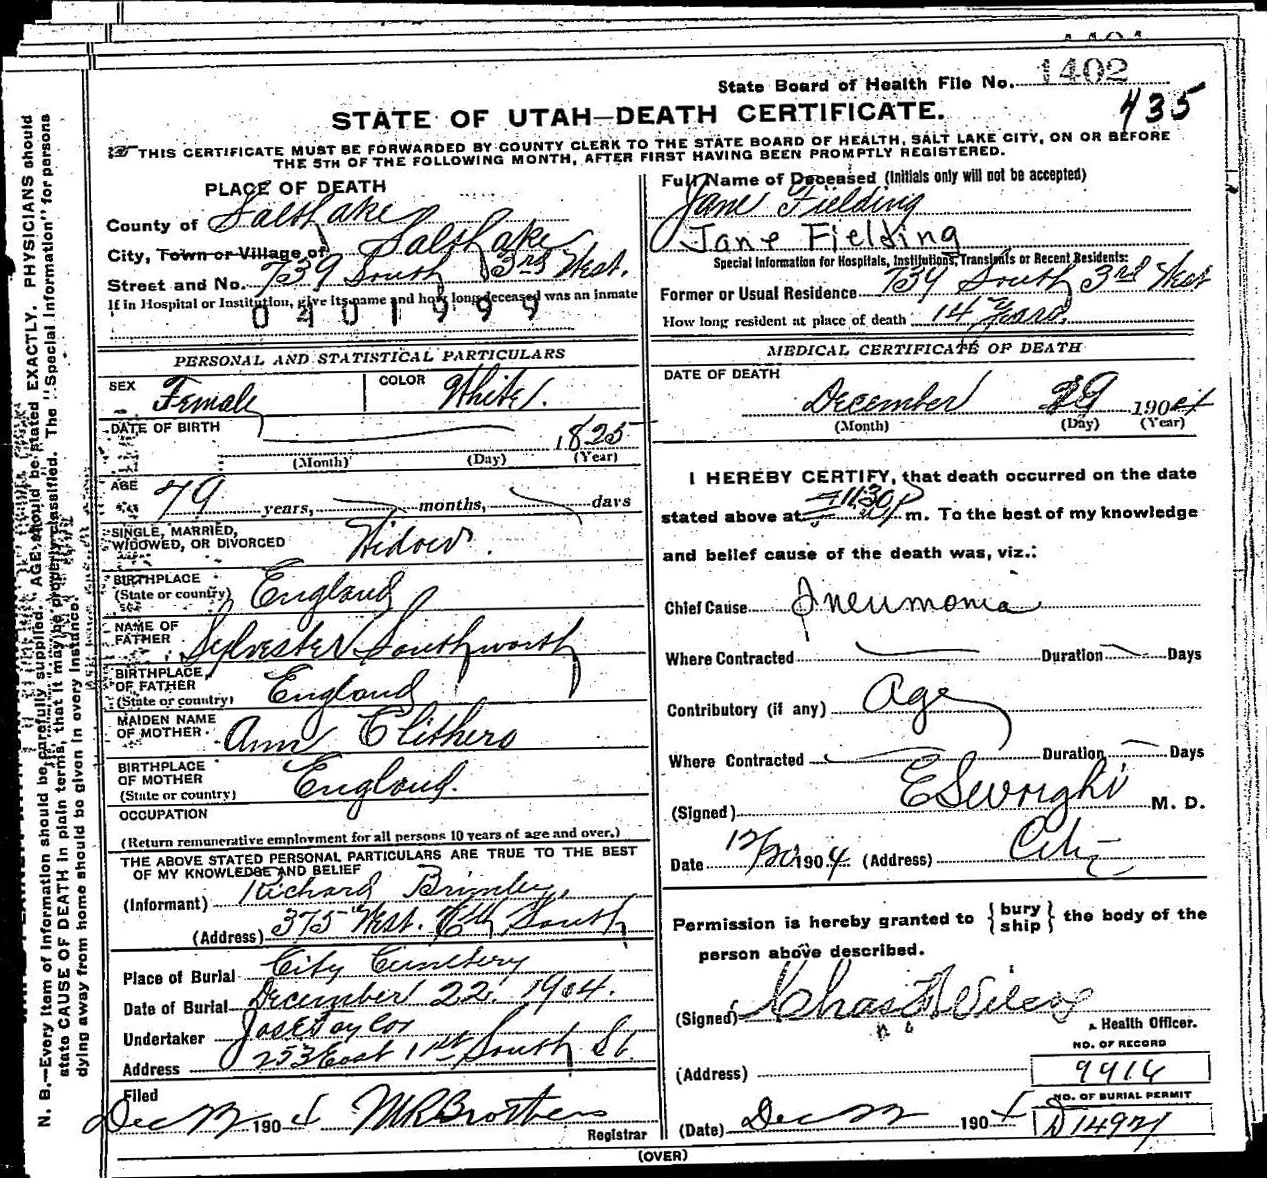 1402
State Board of Health File No.
435
STATE OF UTAH—DEATH CERTIFICATE.
THIS CERTIFICATE MUST BE FORWARDED BY COUNTY CLERK TO THE STATE BOARD OF HEALTH, SALT LAKE CITY, ON OR BEFORE
THE 5TH OF THE FOLLOWING MONTH, AFTER FIRST HAVING BEEN PROMPTLY REGISTERED.
PLACE OF DEATH
County of Salt Lake
City, Town or Village of Salt Lake
Street and No. 739 South 3rd West.
If in Hospital or Institution, give its name and how long deceased was an inmate
0401999
PERSONAL AND STATISTICAL PARTICULARS
SEX Female COLOR White.
DATE OF BIRTH 1825
(Month) (Day) (Year)
AGE 79 years, months, days
SINGLE, MARRIED, WIDOWED, OR DIVORCED Widow.
BIRTHPLACE (State or country) England
NAME OF FATHER Sylvester Southworth
BIRTHPLACE OF FATHER (State or country) England
MAIDEN NAME OF MOTHER Ann Clithero
BIRTHPLACE OF MOTHER (State or country) England.
OCCUPATION
(Return remunerative employment for all persons 10 years of age and over.)
THE ABOVE STATED PERSONAL PARTICULARS ARE TRUE TO THE BEST
OF MY KNOWLEDGE AND BELIEF
(Informant) Richard Brimley,
(Address) 375 West. 6th South
Place of Burial City Cemetery
Date of Burial December 22, 1904.
Undertaker Jos E Taylor
Address 253 East 1st South St.
Filed
Dec 1904 Registrar
Full Name of Deceased (Initials only will not be accepted)
Jane Fielding
Jane Fielding
Special Information for Hospitals, Institutions, Transients or Recent Residents:
Former or Usual Residence 739 South 3rd West
How long resident at place of death 14 Years.
MEDICAL CERTIFICATE OF DEATH
DATE OF DEATH
December 1904
(Month) (Day) (Year)
I HEREBY CERTIFY, that death occurred on the date
stated above at 11:30 P m. To the best of my knowledge
and belief cause of the death was, viz.:
Chief Cause Pneumonia
Where Contracted Duration Days
Contributory (if any) Age
Where Contracted Duration Days
(Signed) M. D.
Date 1904 (Address) City
Permission is hereby granted to {bury ship} the body of the
person above described.
(Signed) Chas
Health Officer.
NO. OF RECORD
(Address) 9916
NO. OF BURIAL PERMIT
(Date) Dec 1904 D 1497
(OVER)
N. B.—Every item of information should be carefully supplied. AGE should be stated EXACTLY. PHYSICIANS should
state CAUSE OF DEATH in plain terms, that it may be properly classified. The "Special Information" for persons
dying away from home should be given in every instance.